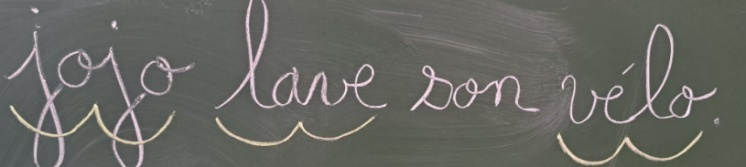 jojo lave son vélo.